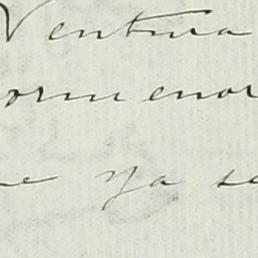 Ventura
pormenor
ya se